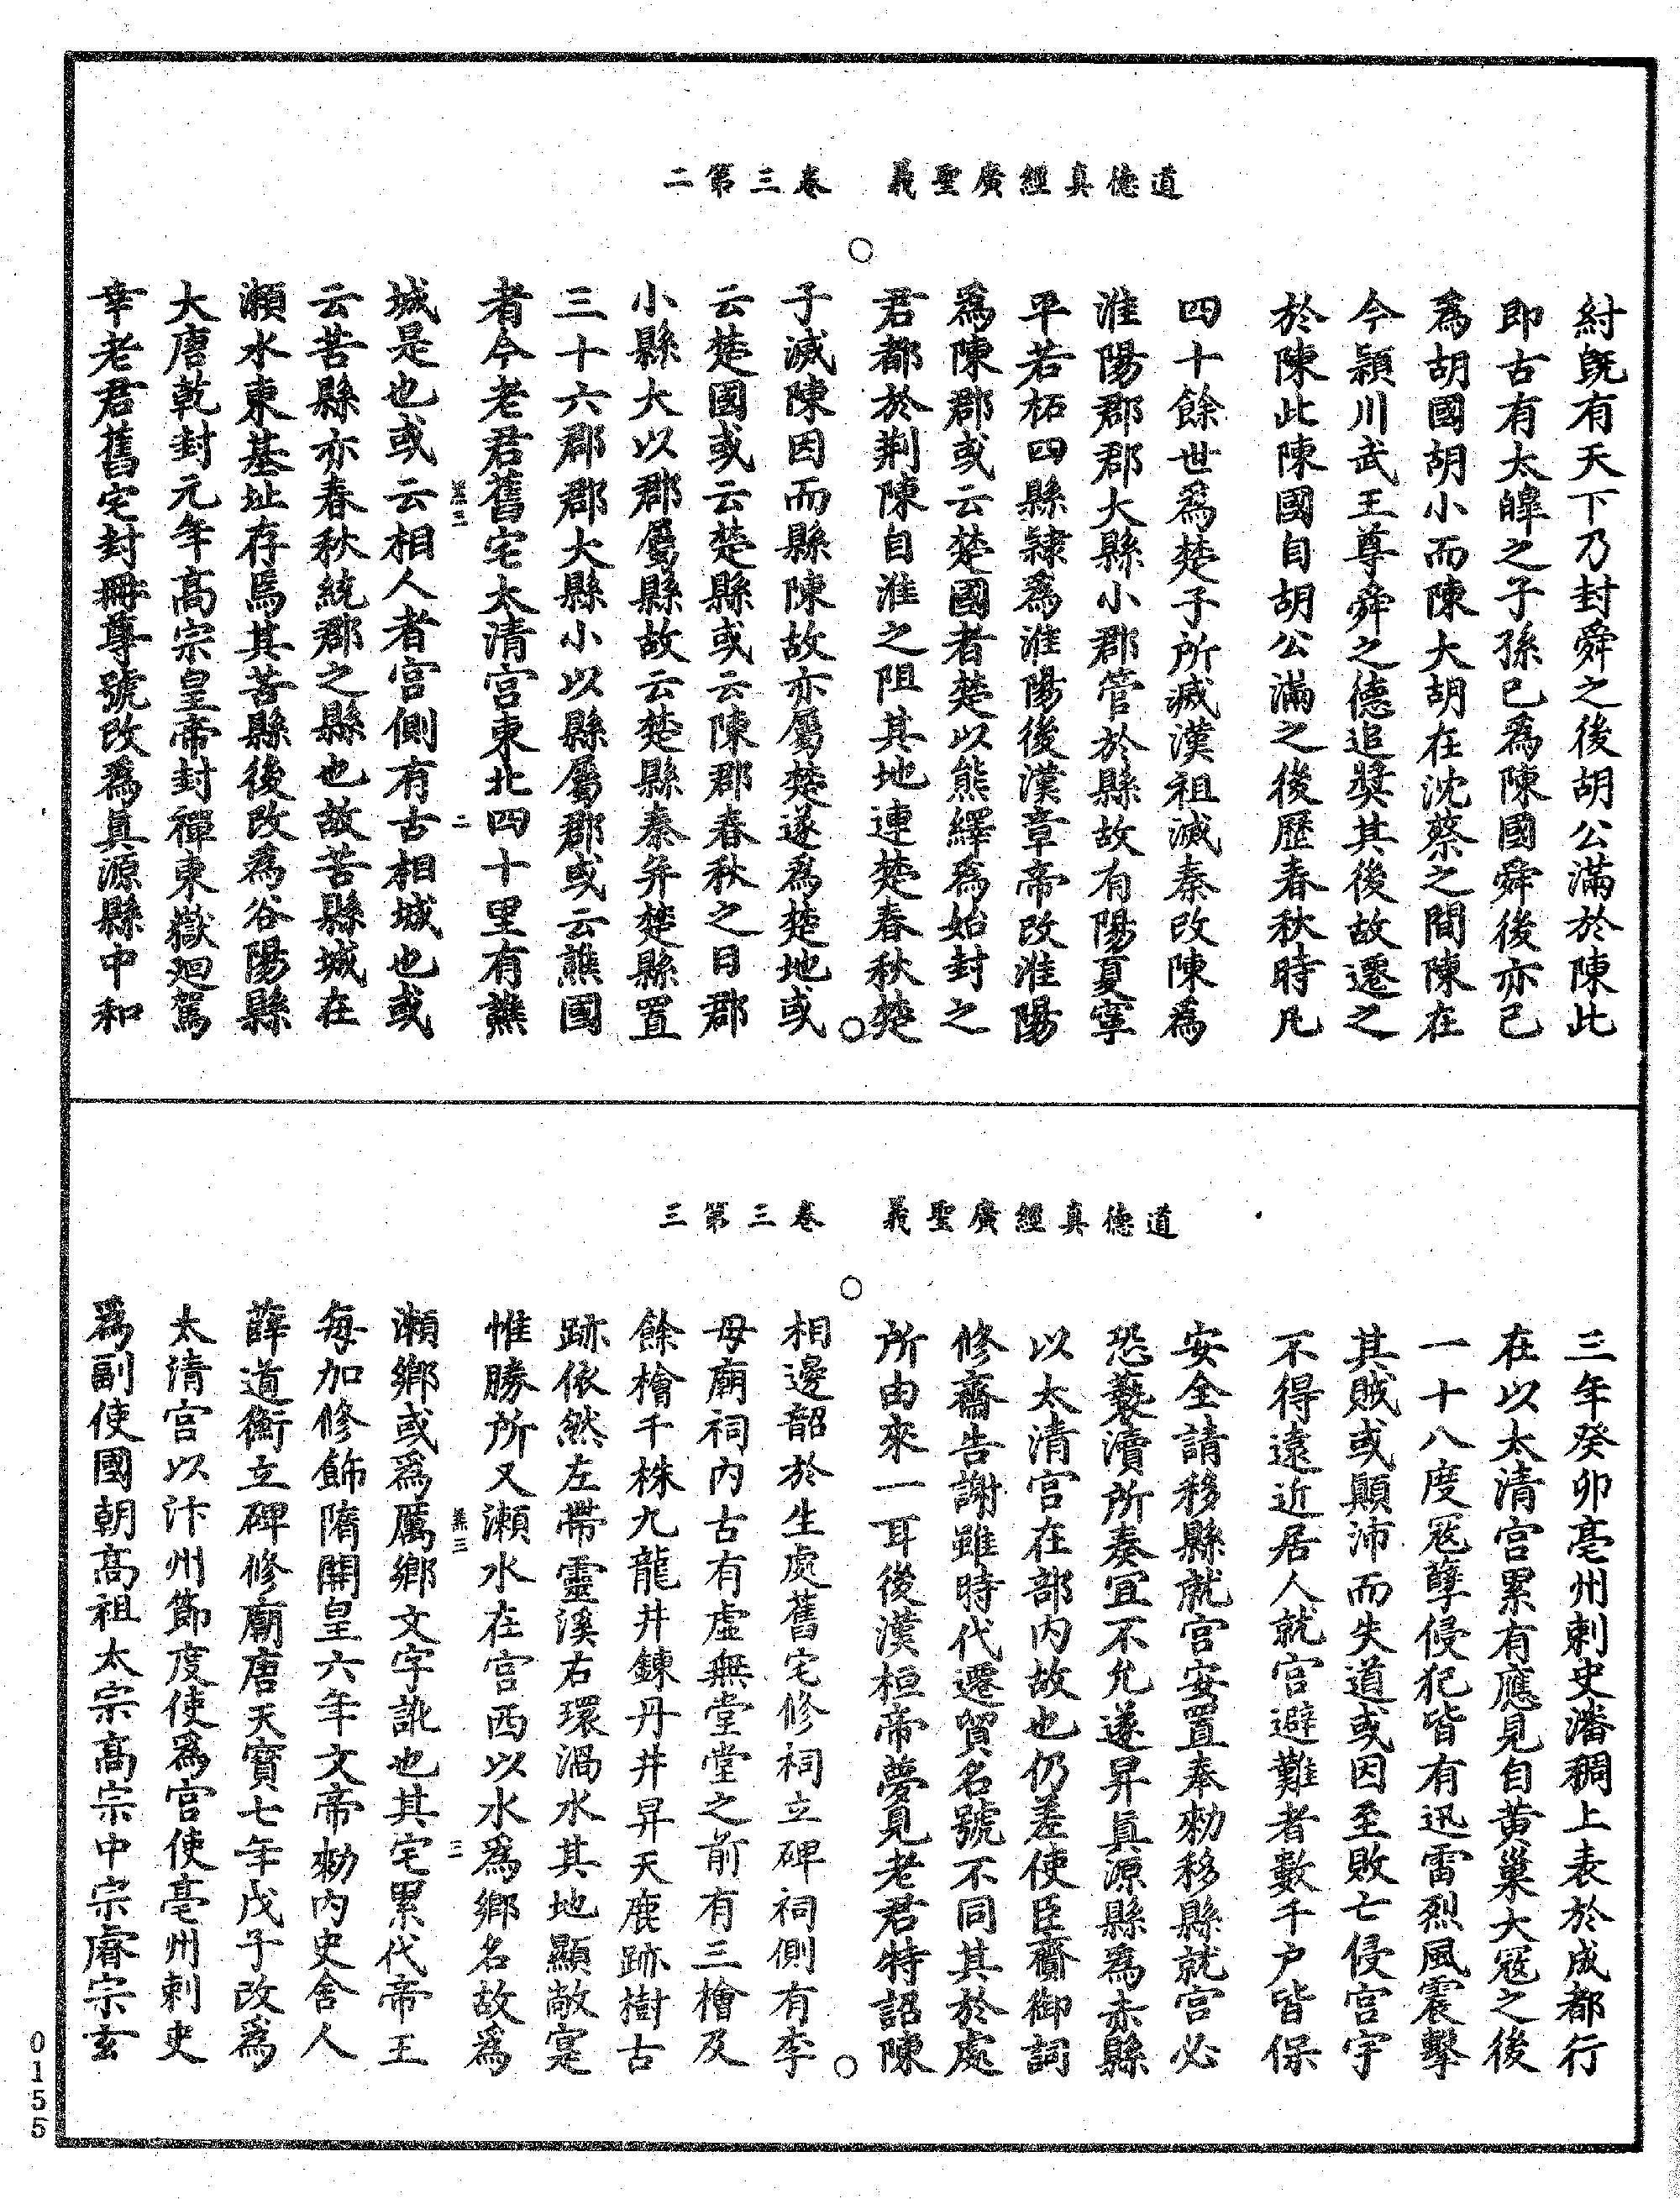 道德真經廣聖義　卷三第二
紂既有天下乃封舜之後胡公滿於陳此
即古有太皥之子孫已為陳國舜後亦已
為胡國胡小而陳大胡在沈蔡之間陳在
今潁川武王尊舜之德追獎其後故遷之
於陳此陳國自胡公滿之後歷春秋時凡
四十餘世為楚子所滅漢祖滅秦改陳為
淮陽郡郡大縣小郡管於縣故有陽夏寧
平若柘四縣隸為淮陽後漢章帝改淮陽
為陳郡或云楚國者楚以熊繹為始封之
君都於荆陳自淮之阻其地連楚春秋楚
子滅陳因而縣陳故亦屬楚遂為楚地或
云楚國或云楚縣或云陳郡春秋之日郡
小縣大以郡屬縣故云楚縣秦并楚縣置
三十六郡郡大縣小以縣屬郡或云譙國
者今老君舊宅太清宮東北四十里有譙
城是也或云相人者宮側有古相城也或
云苦縣亦春秋統郡之縣也故苦縣城在
瀨水東基址存焉其苦縣後改為谷陽縣
大唐乾封元年高宗皇帝封禪東嶽迴駕
幸老君舊宅封冊尊號改為眞源縣中和
道德真經廣聖義　卷三第三
三年癸卯亳州刺史潘稠上表於成都行
在以太清宮累有應見自黃巢大寇之後
一十八度寇孽侵犯皆有迅雷烈風震擊
其賊或顛沛而失道或因至敗亡侵宮宇
不得遠近居人就宮避難者數千户皆保
安全請移縣就宮安置奉勑移縣就宮必
恐褻瀆所奏宜不允遂昇眞源縣為赤縣
以太清宮在部内故也仍差使臣齎御詞
修齋告謝雖時代遷貿名號不同其於處
所由來一耳後漢桓帝夢見老君特詔陳
相邊韶於生處舊宅修祠立碑祠側有李
母廟祠内古有虛無堂堂之前有三檜及
餘檜千株九龍井鍊丹井昇天鹿跡樹古
跡依然左帶靈溪右環渦水其地顯敞寔
惟勝所又瀬水在宮西以水為鄉名故為
瀬鄉或為厲鄉文字訛也其宅累代帝王
每加修飾隋開皇六年文帝勑内史舍人
薛道衡立碑修廟唐天寶七年戊子改為
太清宮以汴州節度使為宮使亳州刺史
為副使國朝高祖太宗高宗中宗睿宗玄
0155